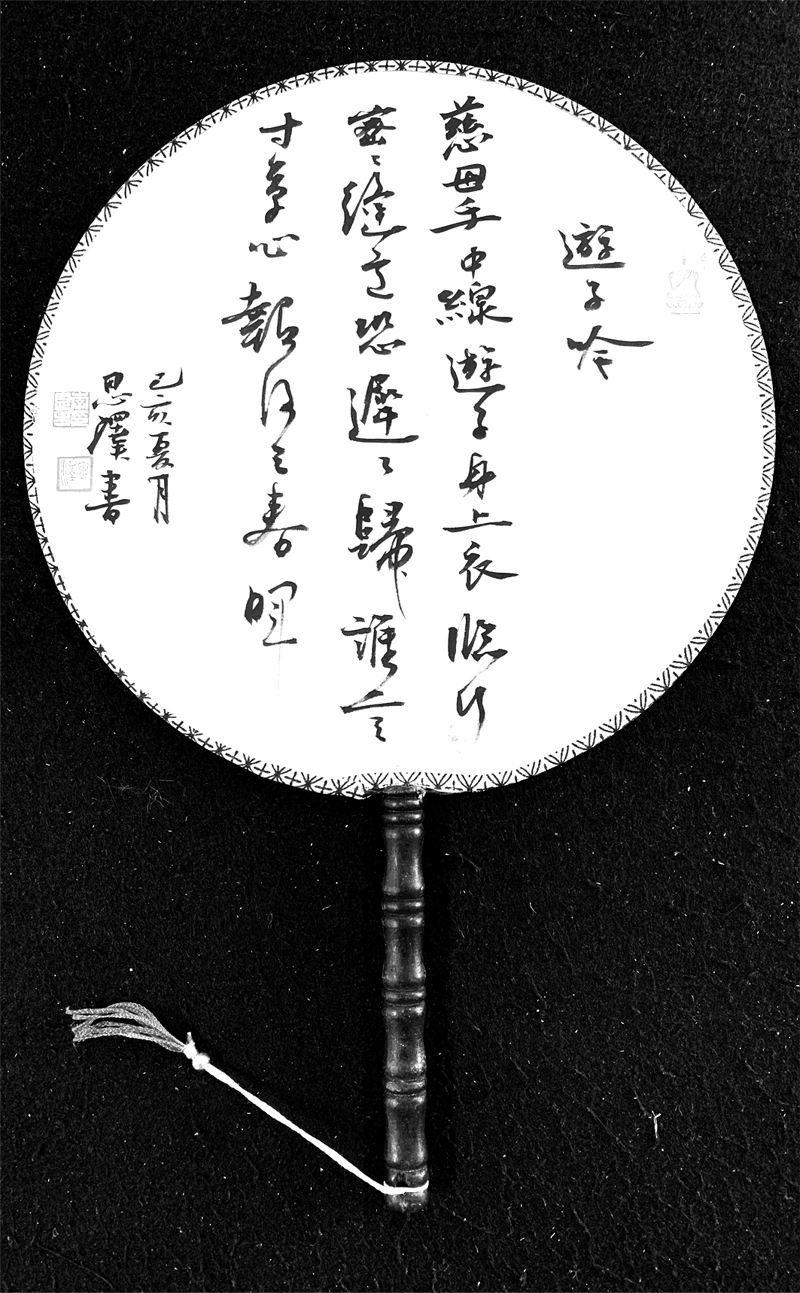 遊子吟
慈母手中線遊子身上衣臨行
密〻縫意恐遲〻歸誰言
寸草心報得三春暉
己亥夏月
思澤書